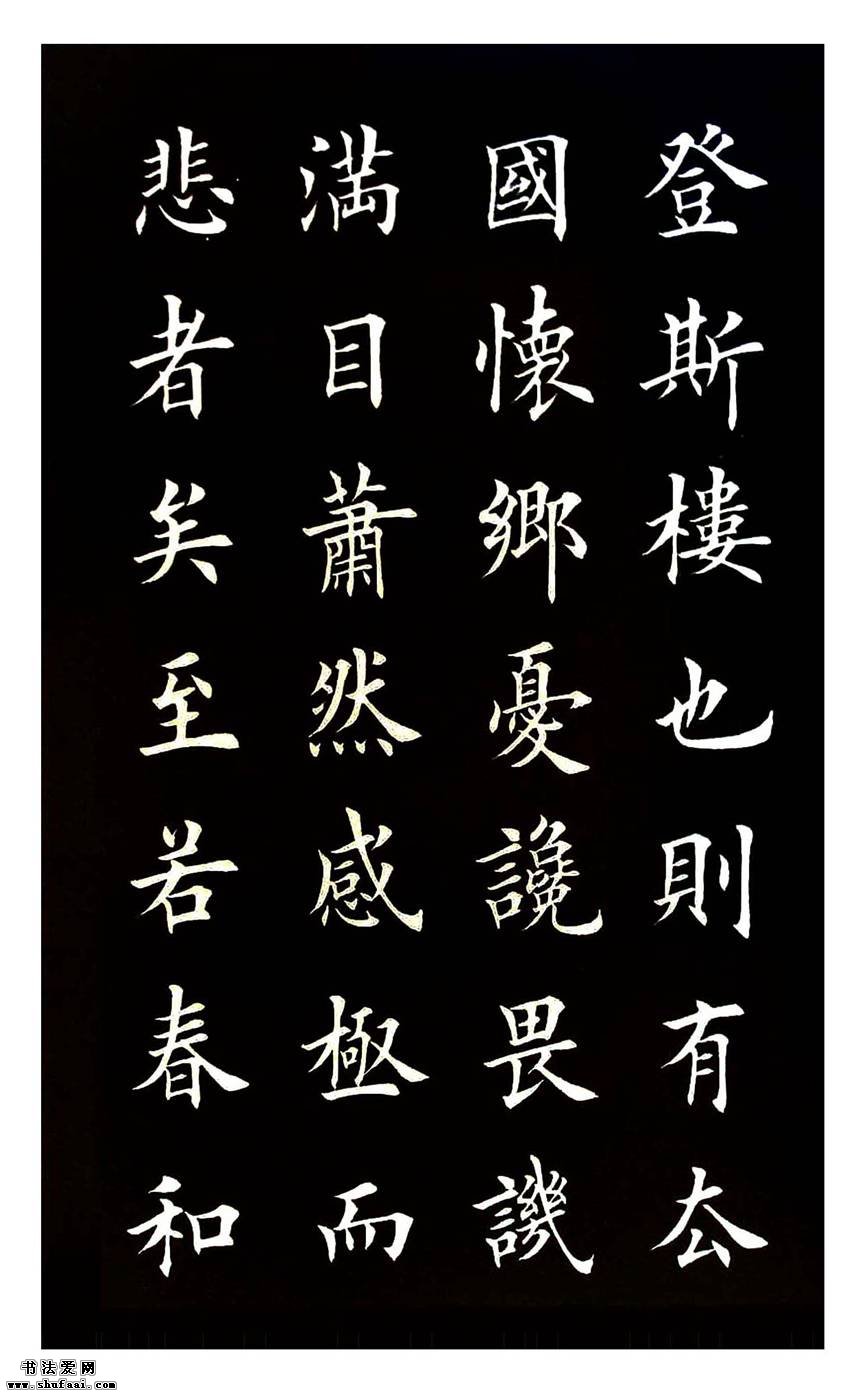 登斯樓也則有厺
國懷鄉憂讒畏譏
満目蕭然感極而
悲者矣至若春和
书法爱网
www.shufaai.com